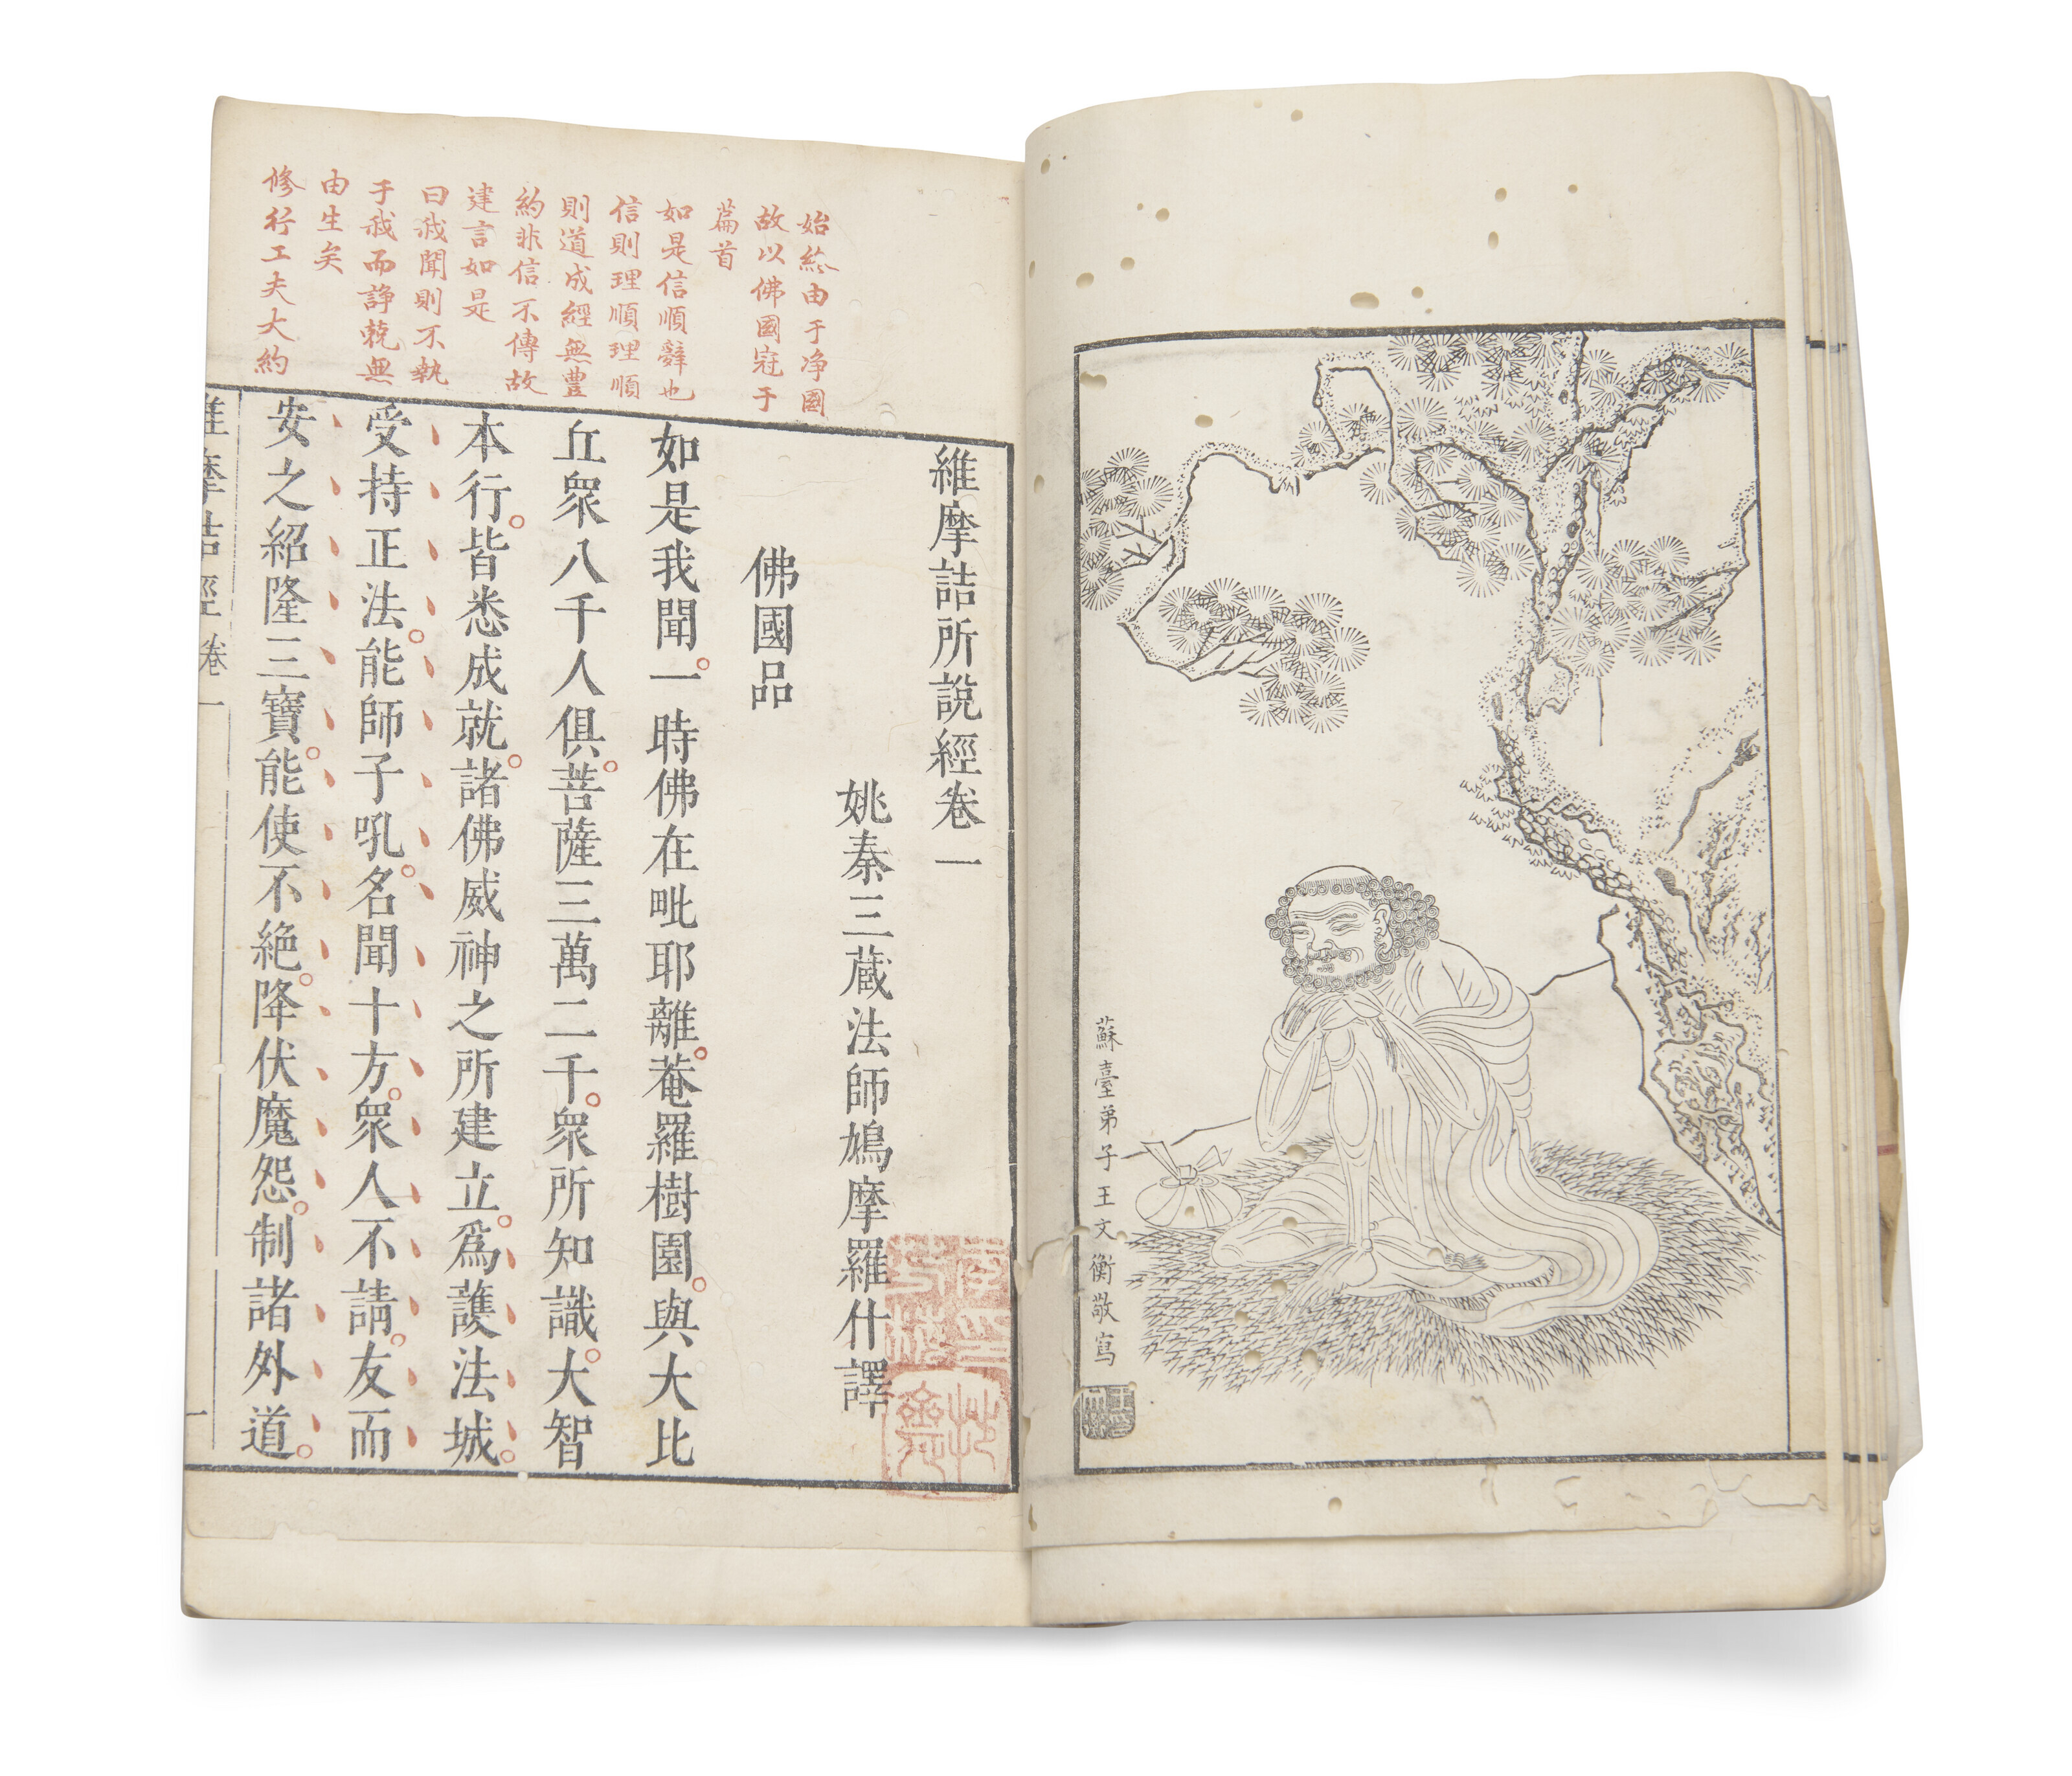 蘇臺弟子王文衡敬寫
始終由于净國
故以佛國冠于
篇首
如是信順辭也
信則理順理順
則道成經無豊
約非信不傳故
建言如是
曰我聞則不執
于我而諍競無
由生矣
修行工夫大約
維摩詰所説經卷一
姚秦三藏法師鳩摩羅什譯
佛國品
如是我聞。一時佛在毗耶離。菴羅樹園。與大比
丘衆八千人俱。菩薩三萬二千。衆所知識。大智
本行。皆悉成就。諸佛威神之所建立。爲護法城。
受持正法。能師子吼。名聞十方。衆人不請。友而
安之紹隆三寶。能使不絶。降伏魔怨。制諸外道。
維摩詰經卷一
一